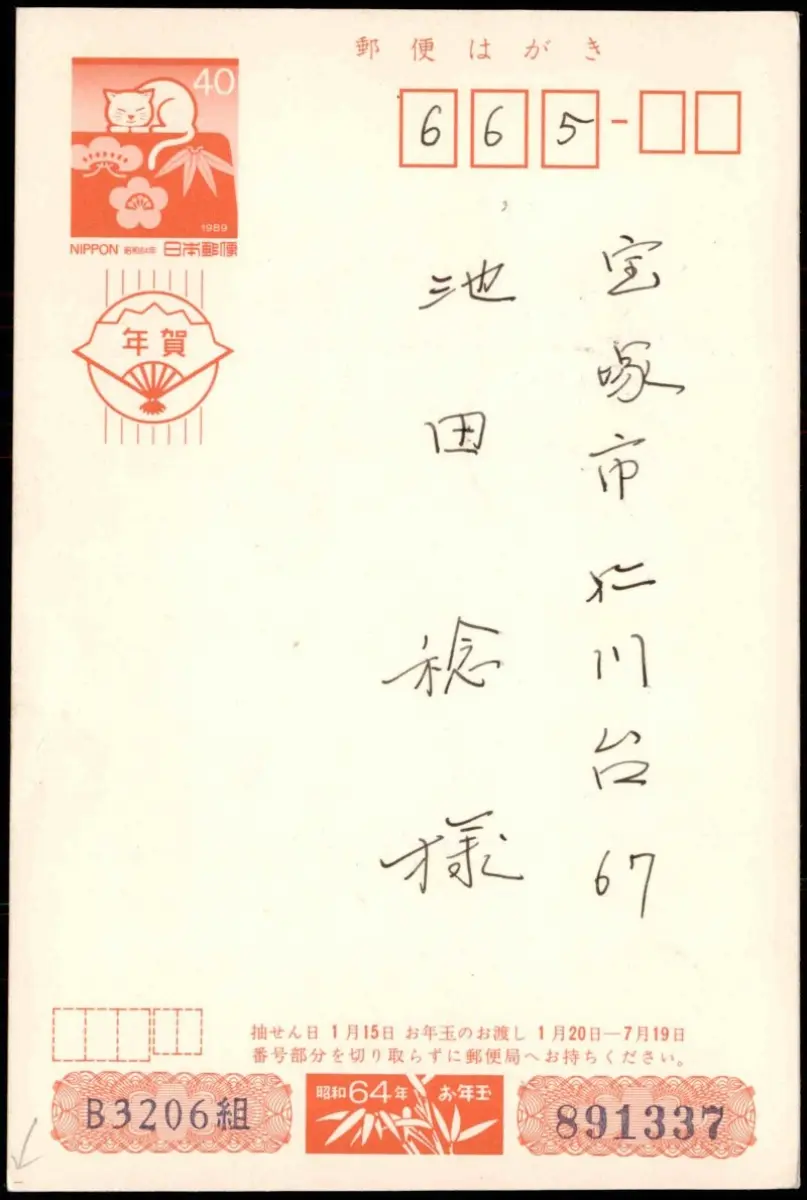 郵便はがき
40
1989
NIPPON 昭和64年 日本郵便
年賀
665
宝塚市仁川台67
池田稔様
抽せん日 1月15日 お年玉のお渡し 1月20日—7月19日
番号部分を切り取らずに郵便局へお持ちください。
B3206組
昭和64年 お年玉
891337